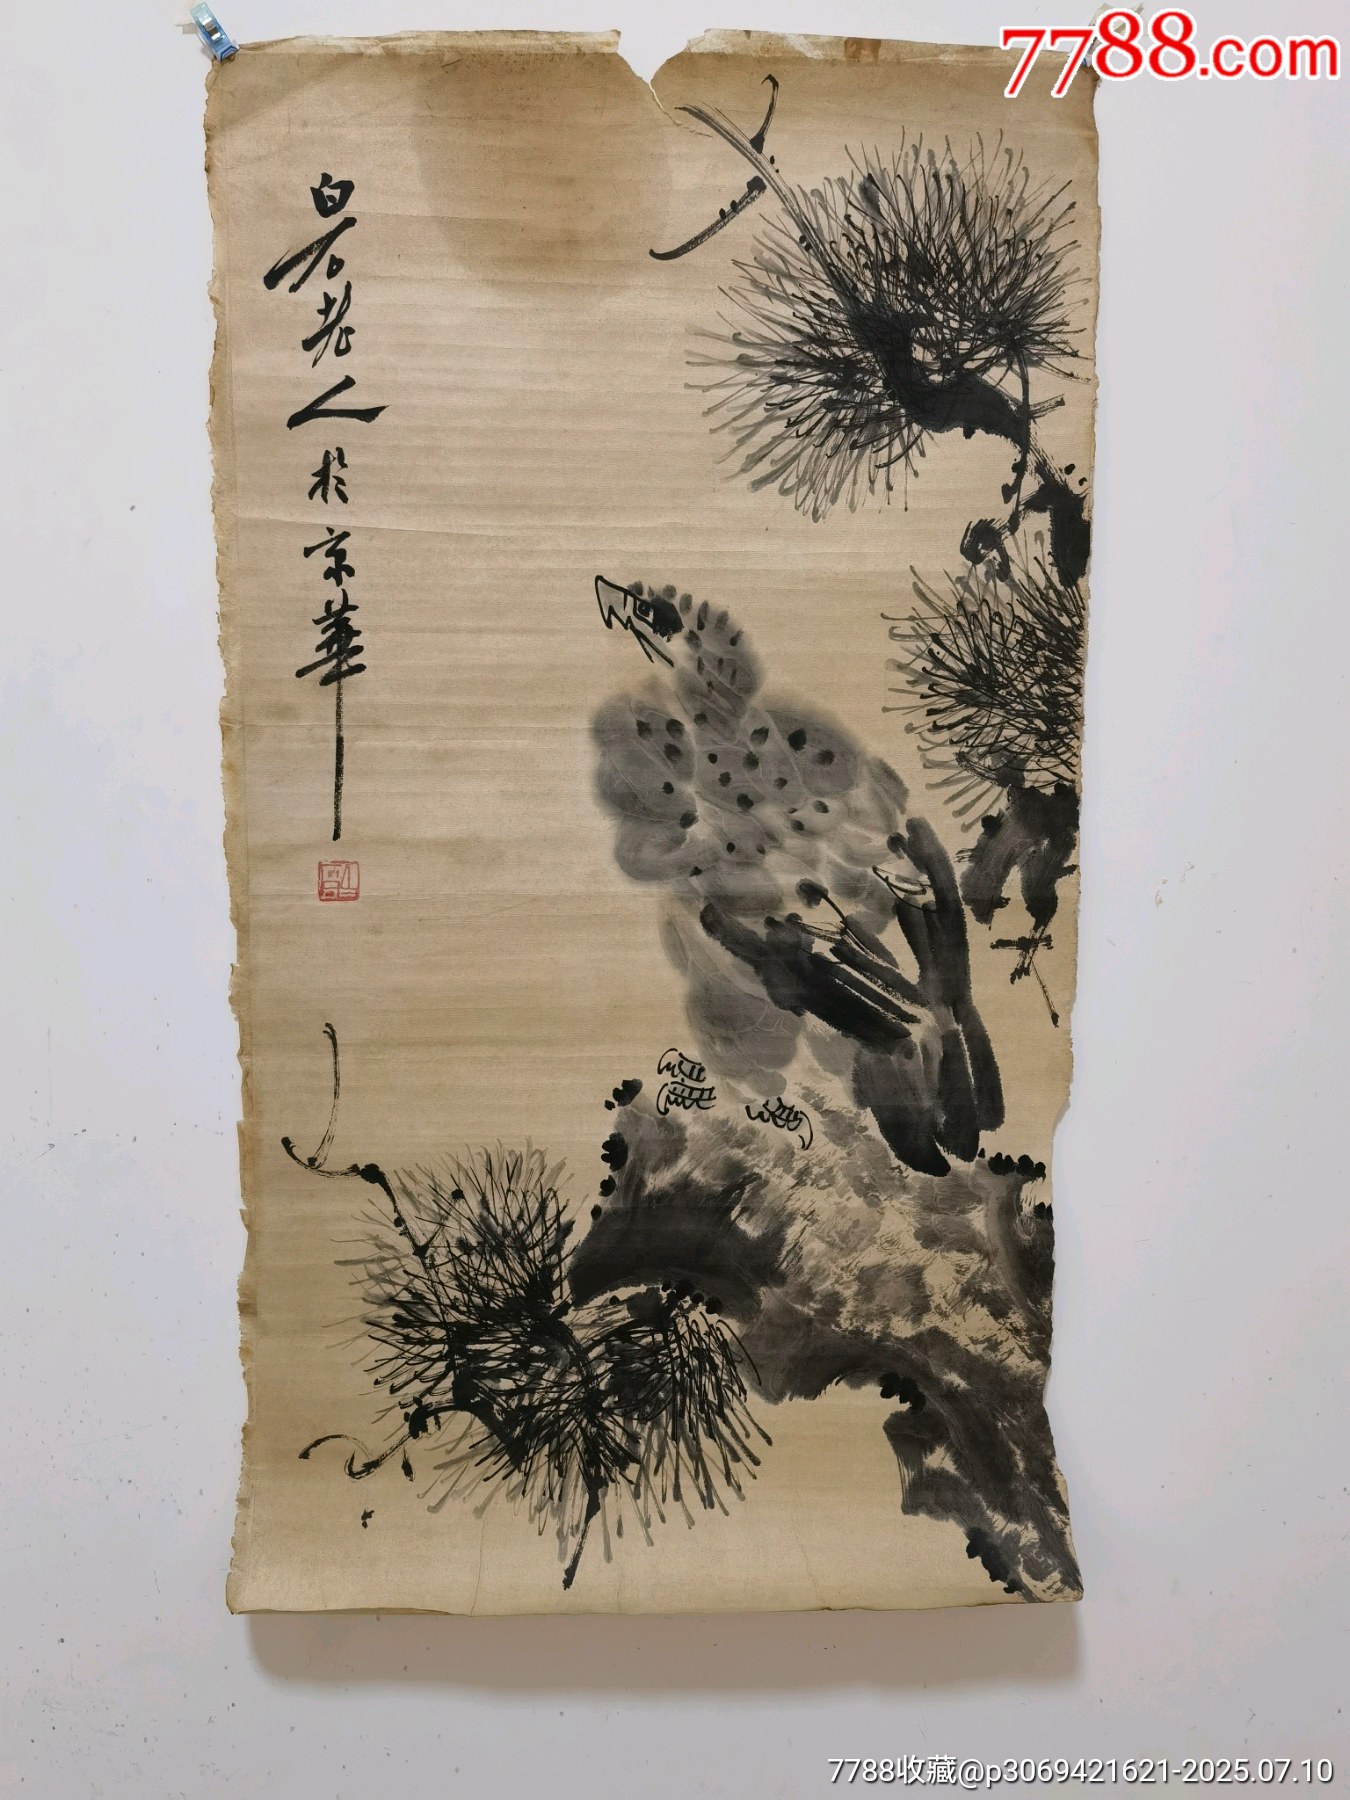 7788.com
白石老人於京華
7788收藏@p3069421621-2025.07.10